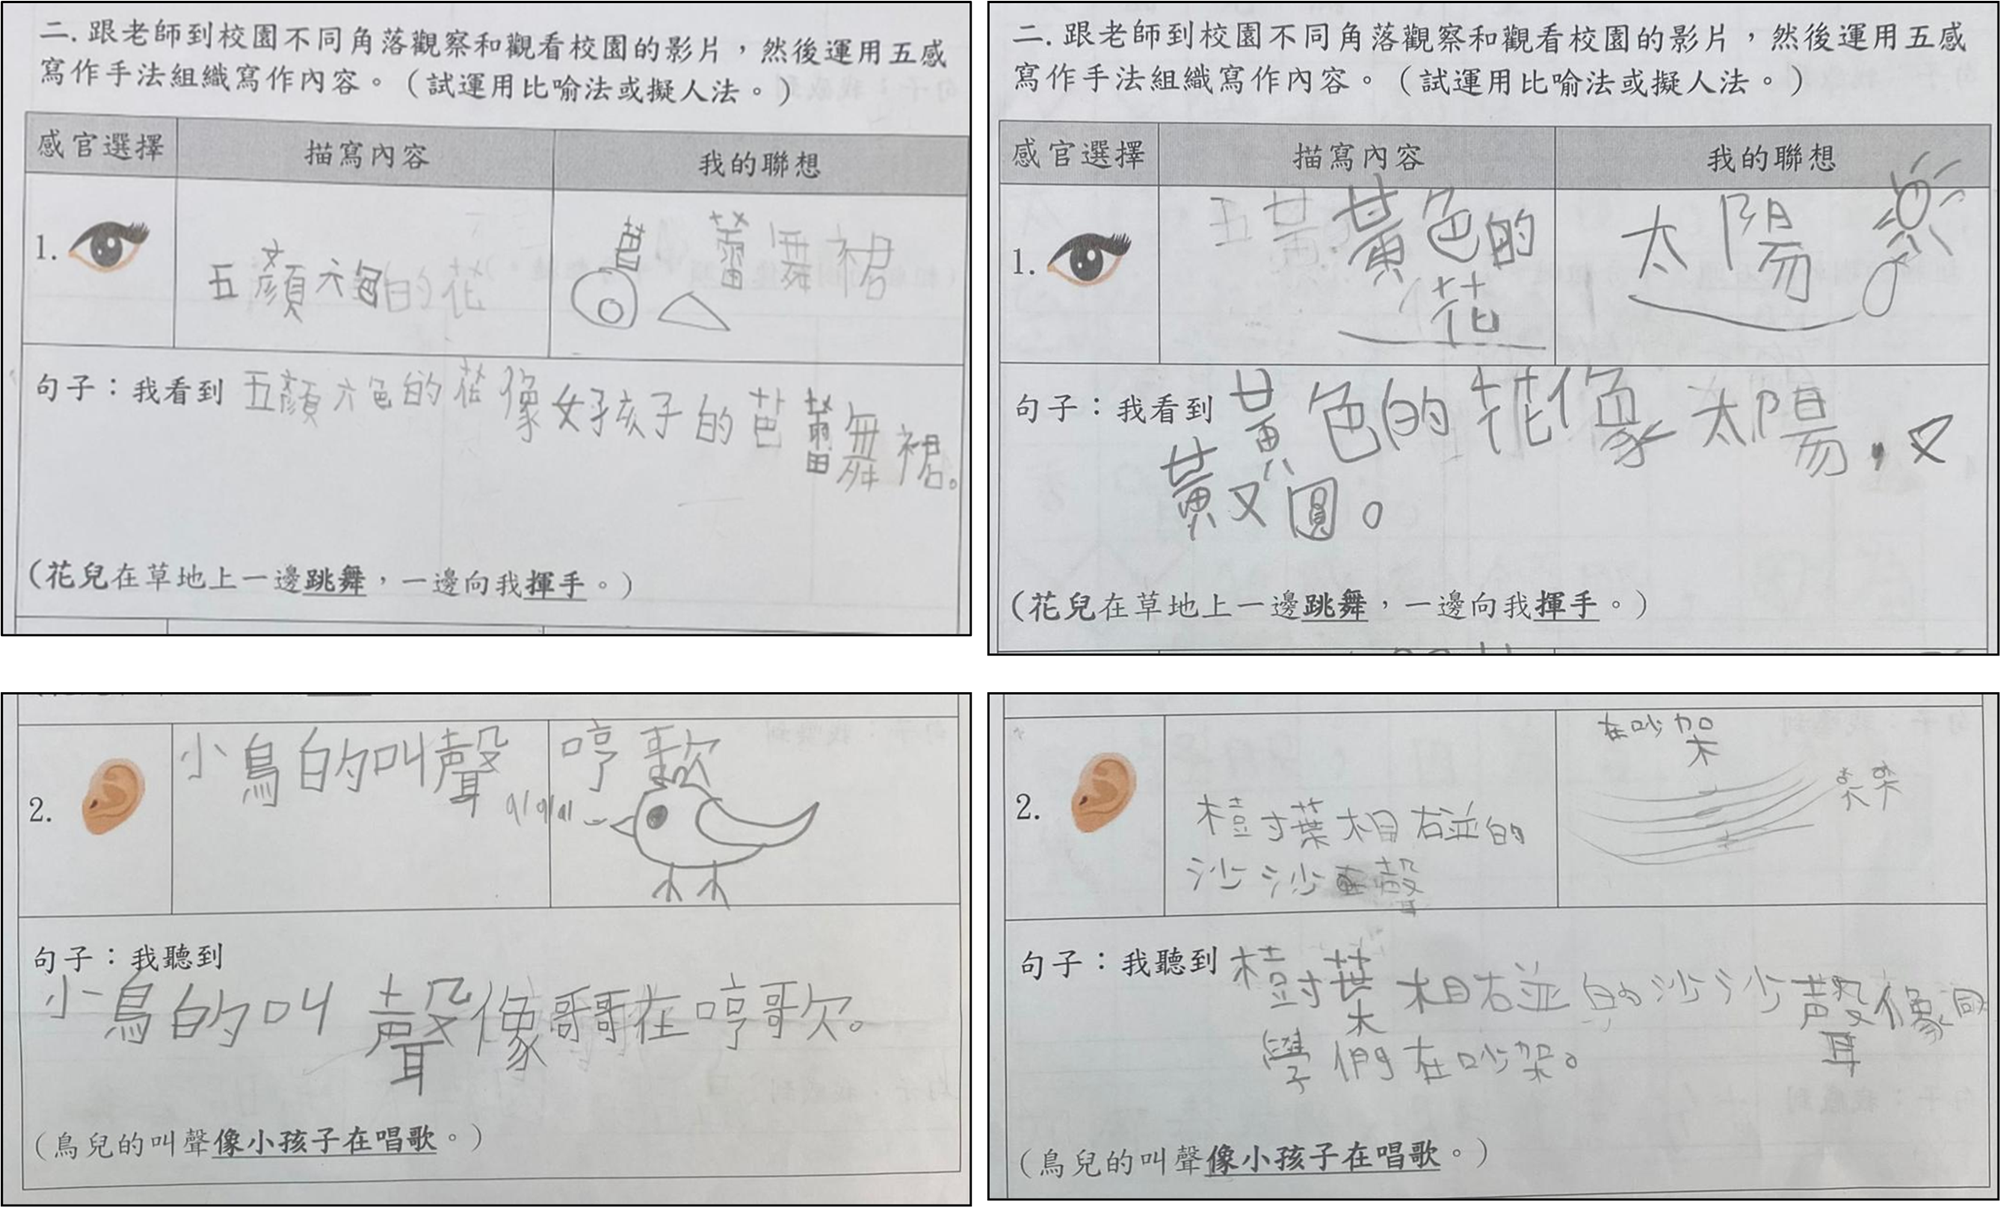 二. 跟老師到校園不同角落觀察和觀看校園的影片，然後運用五感
寫作手法組織寫作內容。（試運用比喻法或擬人法。）
感官選擇 描寫內容 我的聯想
1. 五顏六色的花 芭蕾舞裙
句子：我看到 五顏六色的花像女孩子的芭蕾舞裙。
（花兒在草地上一邊跳舞，一邊向我揮手。）
二. 跟老師到校園不同角落觀察和觀看校園的影片，然後運用五感
寫作手法組織寫作內容。（試運用比喻法或擬人法。）
感官選擇 描寫內容 我的聯想
1. 黃色的 太陽
花
句子：我看到 黃色的花像太陽，又
黃又圓。
（花兒在草地上一邊跳舞，一邊向我揮手。）
2. 小鳥的叫聲 哼歌
句子：我聽到
小鳥的叫聲像哥哥在哼歌。
（鳥兒的叫聲像小孩子在唱歌。）
在吵架
2. 樹葉相碰的
沙沙聲
句子：我聽到 樹葉相碰的沙沙聲像同
學們在吵架。
（鳥兒的叫聲像小孩子在唱歌。）